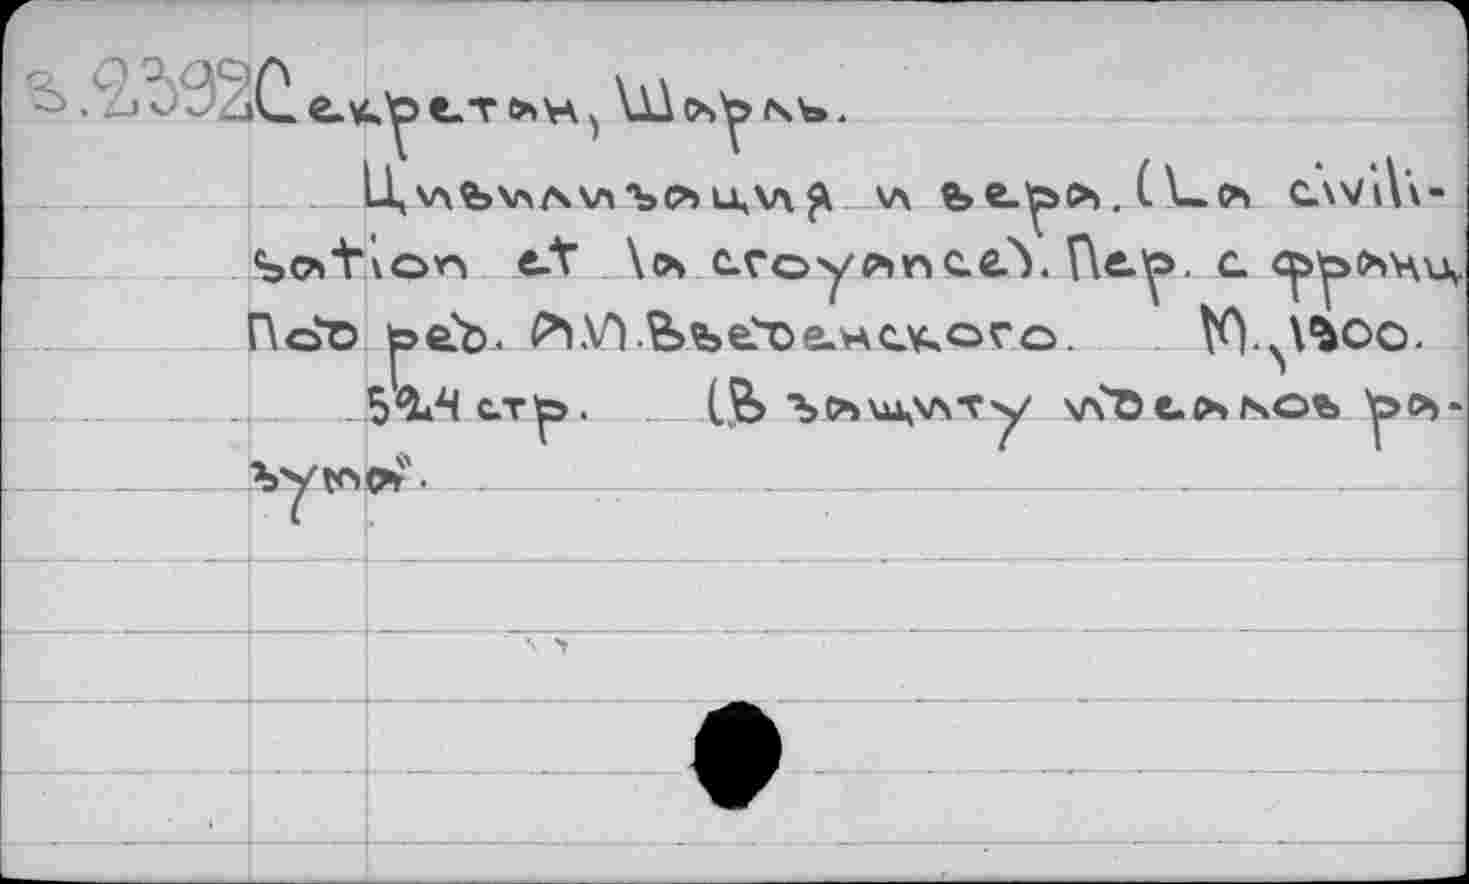 в.23392 Секретан, Шарль.
Цивилизация и вера. (La civili-
sation et la croyance). Пер. с франц.
Под ред. А.И.Введенского. М., 1900.
524 стр. (В защиту идеалов ра-
зума".